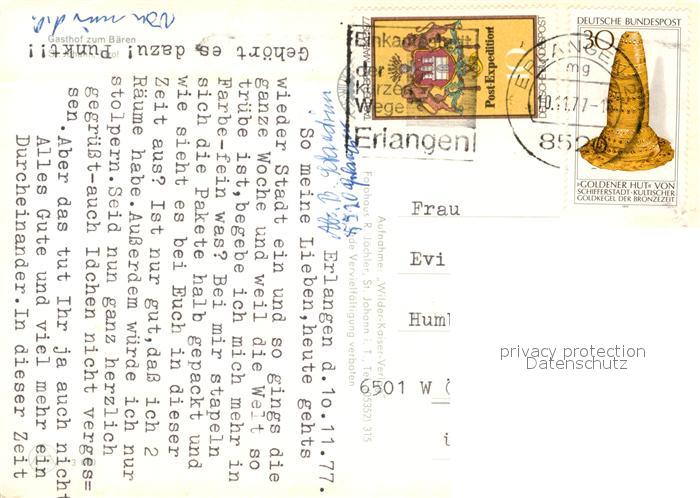 Gasthof zum Bären
Gehört es dazu! Punkt!!
Erlangen d.10.11.77.
So meine Lieben,heute gehts
wieder Stadt ein und so gings die
ganze Woche und weil die Welt so
trübe ist,begebe ich mich mehr in
Farbe-fein was? Bei mir stapeln
sich die Pakete halb gepackt und
wie sieht es bei Euch in dieser
Zeit aus? Ist nur gut,daß ich 2
Räume habe.Außerdem würde ich nur
stolpern.Seid nun ganz herzlich
gegrüßt-auch Idchen nicht verges=
sen.Aber das tut Ihr ja auch nicht
Alles Gute und viel mehr ein
Durcheinander.In dieser Zeit
Aufnahme „Wilder-Kaiser-Ver
R. Jöchler, St. Johann i. T. Tel. (05352) 315
Vervielfältigung verboten
Einkaufsstadt
der
kurzen
Wege
Erlangen
TAG DER BRIEFMARKE 1977
Post-Expedition
10
DEUTSCHE BUNDESPOST
ERLANGEN 2
mg
10.11.77-1
8520
DEUTSCHE BUNDESPOST
30
»GOLDENER HUT« VON
SCHIFFERSTADT·KULTISCHER
GOLDKEGEL DER BRONZEZEIT
Frau
Evi
Humb
6501 W ö
privacy protection
Datenschutz